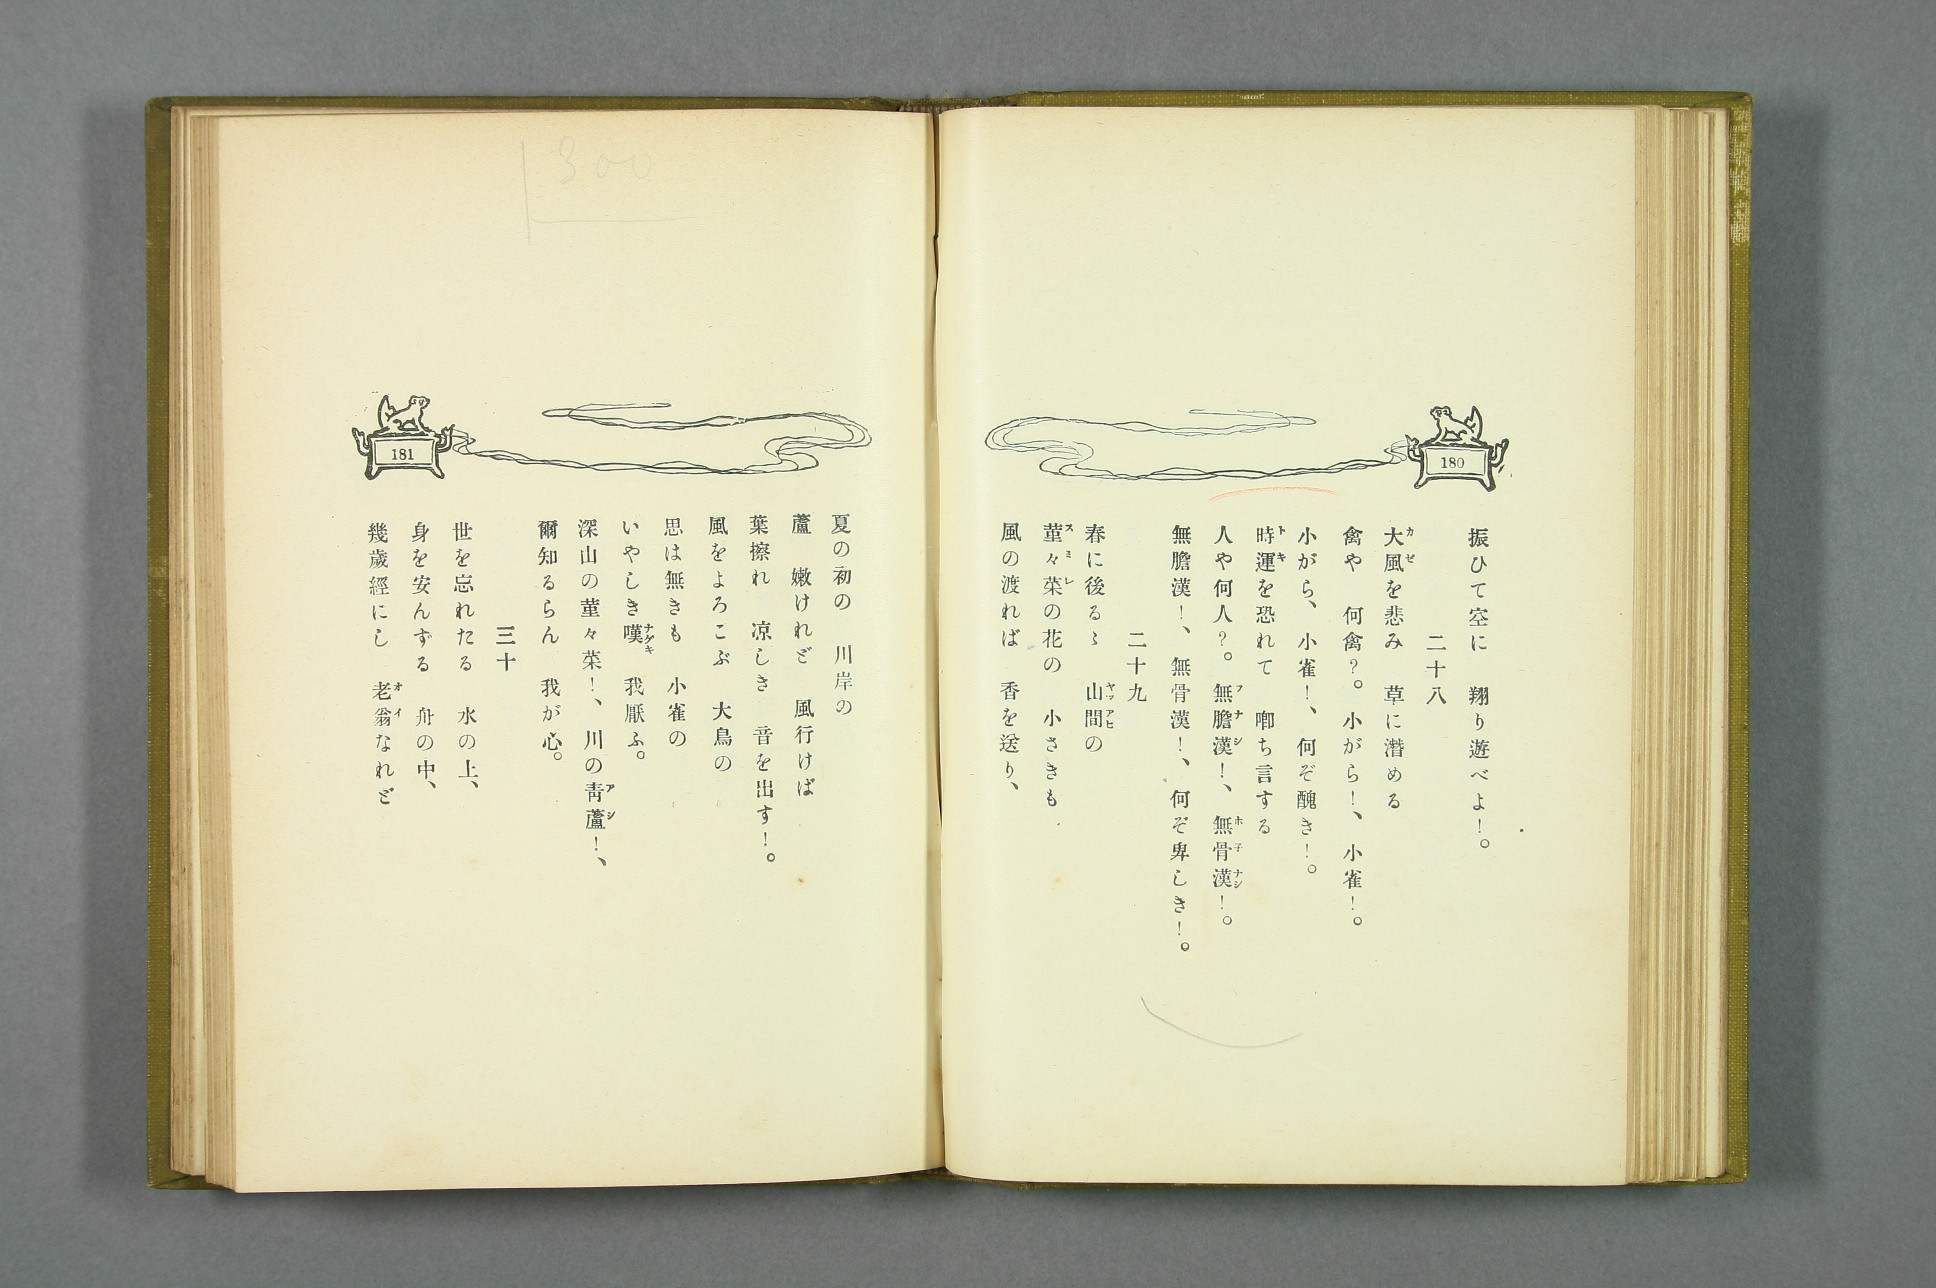 180
振ひて空に　翔り遊べよ！。
二十八
大風を悲み　草に潛める
カゼ
禽や　何禽？。小がら！、小雀！。
小がら、小雀！、何ぞ醜き！。
時運を恐れて　喞ち言する
トキ
人や何人？。無膽漢！、無骨漢！。
フナシ　ホ子ナシ
無膽漢！、無骨漢！、何ぞ卑しき！。
二十九
春に後るゝ　山間の
ヤマアヒ
菫々菜の花の　小さきも
スミレ
風の渡れば　香を送り、
181
夏の初の　川岸の
蘆　嫩けれど　風行けば
葉擦れ　凉しき　音を出す！。
風をよろこぶ　大鳥の
思は無きも　小雀の
いやしき嘆　我厭ふ。
ナゲキ
深山の菫々菜！、川の靑蘆！、
アシ
爾知るらん　我が心。
三十
世を忘れたる　水の上、
身を安んずる　舟の中、
幾歲經にし　老翁なれど
オイ
300